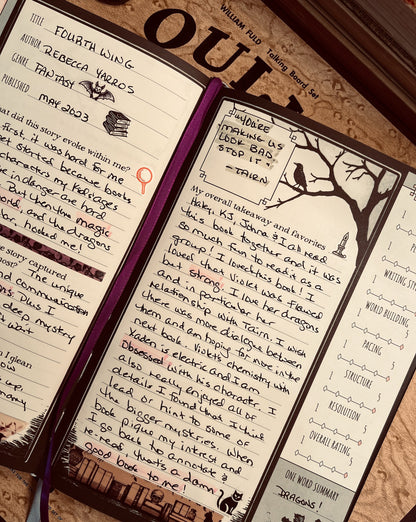 WILLIAM FULD Talking Board Set
OUI
TITLE FOURTH WING
AUTHOR REBECCA YARROS
GENRE FANTASY
PUBLISHED MAY 2023
hat did this story evoke within me?
first, it was hard for me
get started because books
characters my kids ages
are in danger are hard
but then the magic
world and the dragons
hooked me!
e story captured
The unique
and communication
Plus I
deep mystery
want
I glean
now
up,
onomy
"YOU'RE
MAKING US
LOOK BAD.
STOP IT."
- TAIRN
My overall takeaway and favorites
Haley, KJ, Jenna & I all read
this book together and it was
so much fun to read it as a
group! I loved this book! I
loved that Violet was flawed
but strong. I love her dragons
and in particular her
relationship with Tairn. I wish
there was more dialogue between
them and am hoping for more in the
next book. Violet's chemistry with
Xaden is electric and I am
obsessed with his character. I
also really enjoyed all of the
details I found that I think
lead or hint to some of
the bigger mysteries. When a
book pique my intrest and
I go back to annotate &
re-read, that's a damn
good book to me!
WRITING STYLE
1 5
WORD BUILDING
1 5
PACING
1 5
STRUCTURE
1 5
RESOLUTION
1 5
OVERALL RATING
1 5
ONE WORD SUMMARY
DRAGONS!